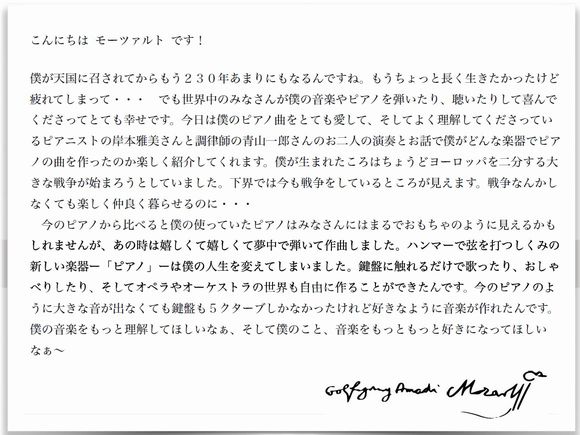 こんにちは モーツァルト です！
僕が天国に召されてからもう２３０年あまりにもなるんですね。もうちょっと長く生きたかったけど
疲れてしまって・・・　でも世界中のみなさんが僕の音楽やピアノを弾いたり、聴いたりして喜んで
くださってとても幸せです。今日は僕のピアノ曲をとても愛して、そしてよく理解してくださってい
るピアニストの岸本雅美さんと調律師の青山一郎さんのお二人の演奏とお話で僕がどんな楽器でピア
ノの曲を作ったのか楽しく紹介してくれます。僕が生まれたころはちょうどヨーロッパを二分する大
きな戦争が始まろうとしていました。下界では今も戦争をしているところが見えます。戦争なんかし
なくても楽しく仲良く暮らせるのに・・・
　今のピアノから比べると僕の使っていたピアノはみなさんにはまるでおもちゃのように見えるかも
しれませんが、あの時は嬉しくて嬉しくて夢中で弾いて作曲しました。ハンマーで弦を打つしくみの
新しい楽器ー「ピアノ」ーは僕の人生を変えてしまいました。鍵盤に触れるだけで歌ったり、おしゃ
べりしたり、そしてオペラやオーケストラの世界も自由に作ることができたんです。今のピアノのよ
うに大きな音が出なくても鍵盤も５クターブしかなかったけれど好きなように音楽が作れたんです。
僕の音楽をもっと理解してほしいなぁ、そして僕のこと、音楽をもっともっと好きになってほしい
なぁ〜
Wolfgang Amadè Mozart